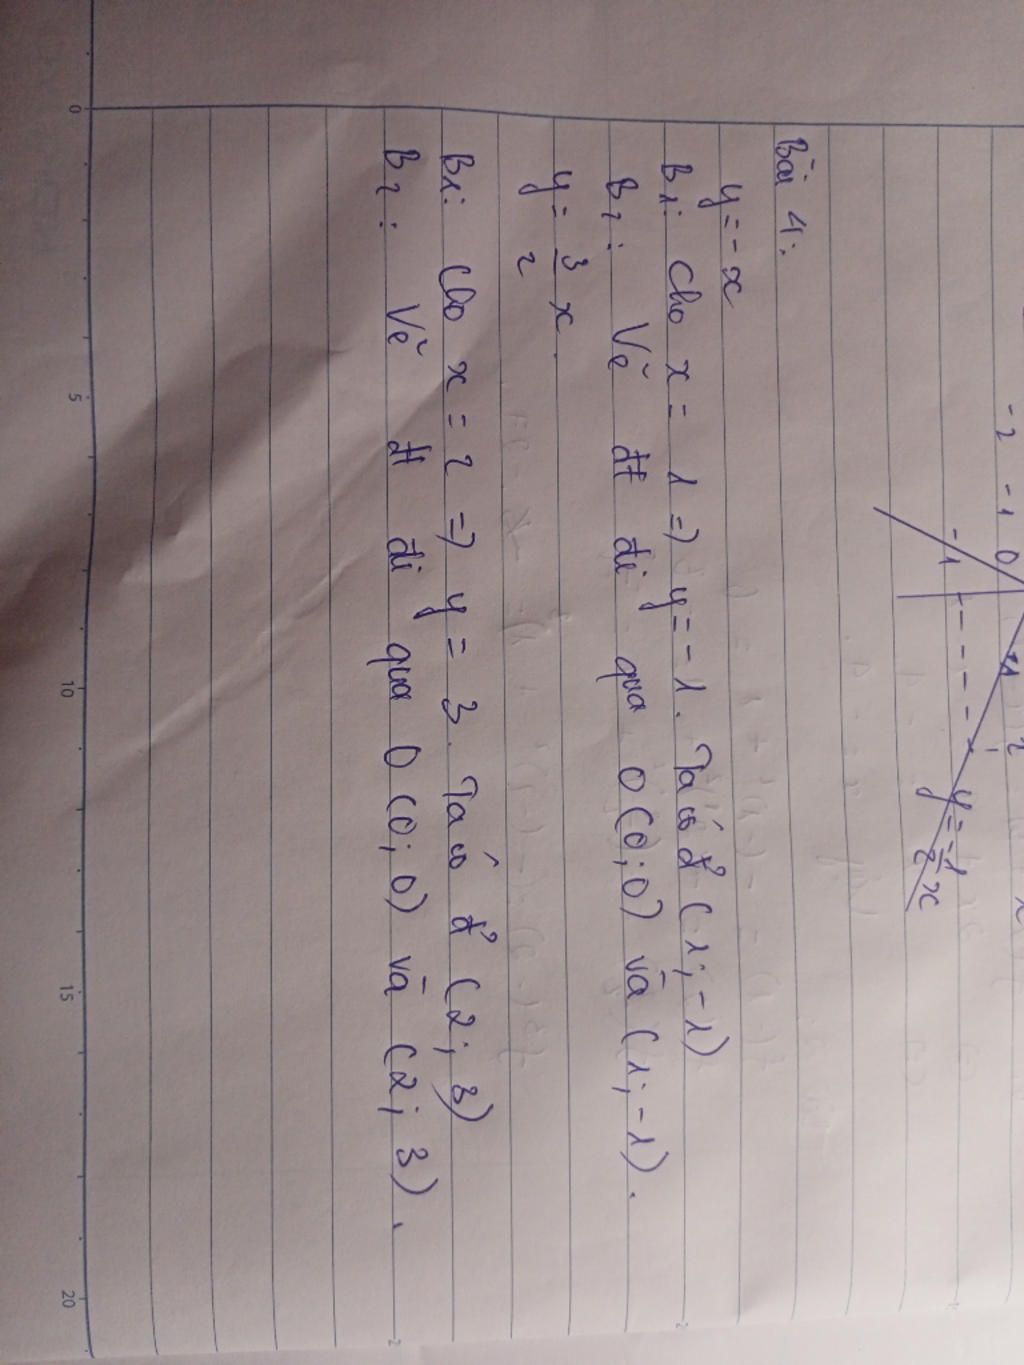 -2 -1 0 1 2 x
-1
y = -1/2 x
Bài 4:
y = -x
B1: Cho x = 1 => y = -1. Ta có đ' (1; -1)
B2: Vẽ đt đi qua O(0; 0) và (1; -1).
y = 3/2 x.
B1: Cho x = 2 => y = 3. Ta có đ' (2; 3)
B2: Vẽ đt đi qua O(0; 0) và (2; 3).
0 5 10 15 20